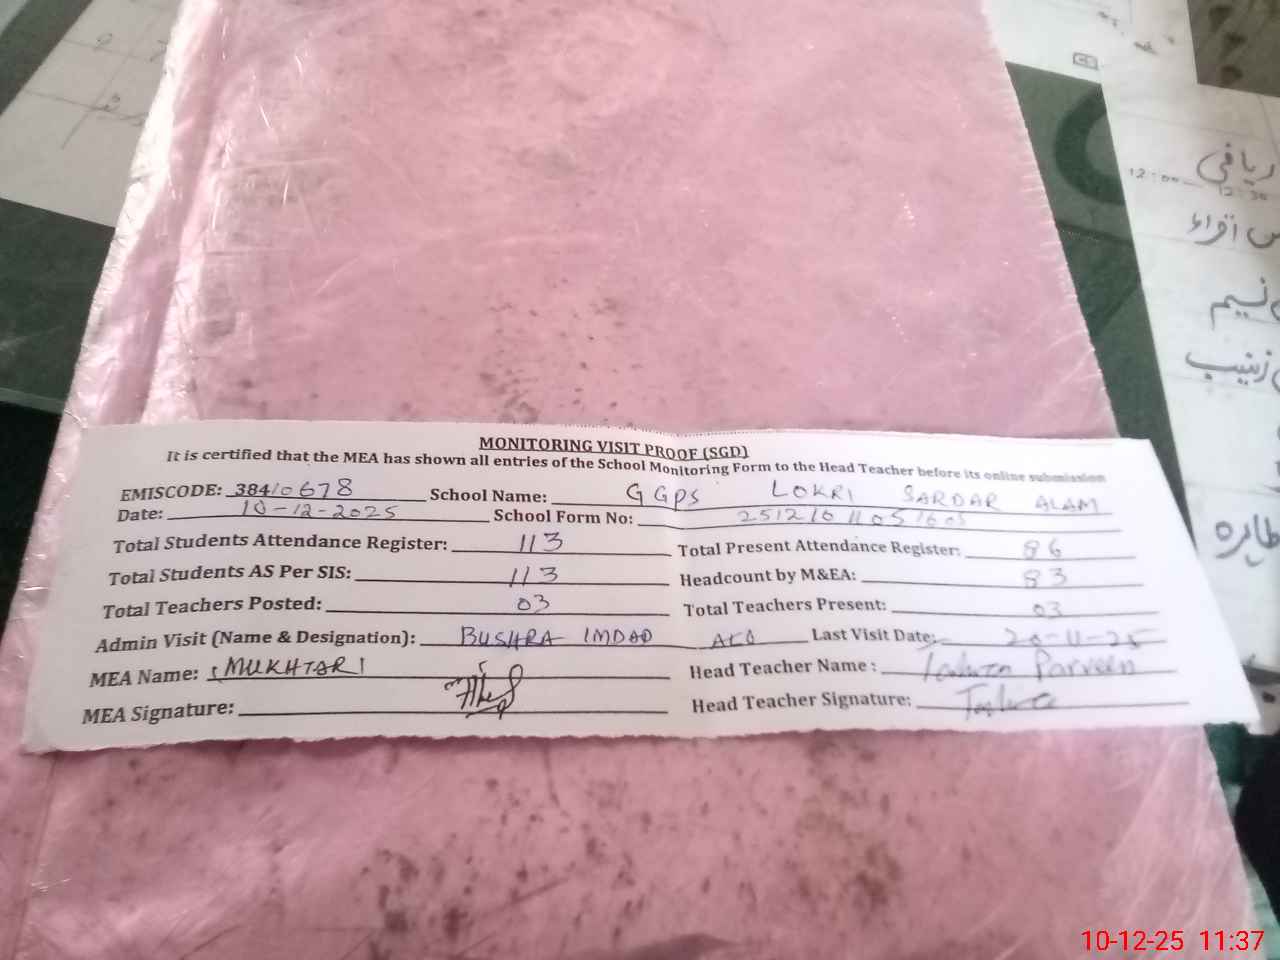 ریاضی
12:00 – 12:30
نسیم
زینب
طاہرہ
MONITORING VISIT PROOF (SGD)
It is certified that the MEA has shown all entries of the School Monitoring Form to the Head Teacher before its online submission
EMISCODE: 38410678 School Name: GGPS LOKRI SARDAR ALAM
Date: 10-12-2025 School Form No:
Total Students Attendance Register: 113 Total Present Attendance Register: 86
Total Students AS Per SIS: 113 Headcount by M&EA: 83
Total Teachers Posted: 03 Total Teachers Present: 03
Admin Visit (Name & Designation): BUSHRA IMDAD Last Visit Date: 20-11-25
MEA Name: MUKHTAR Head Teacher Name: Parveen
MEA Signature: Head Teacher Signature:
10-12-25 11:37